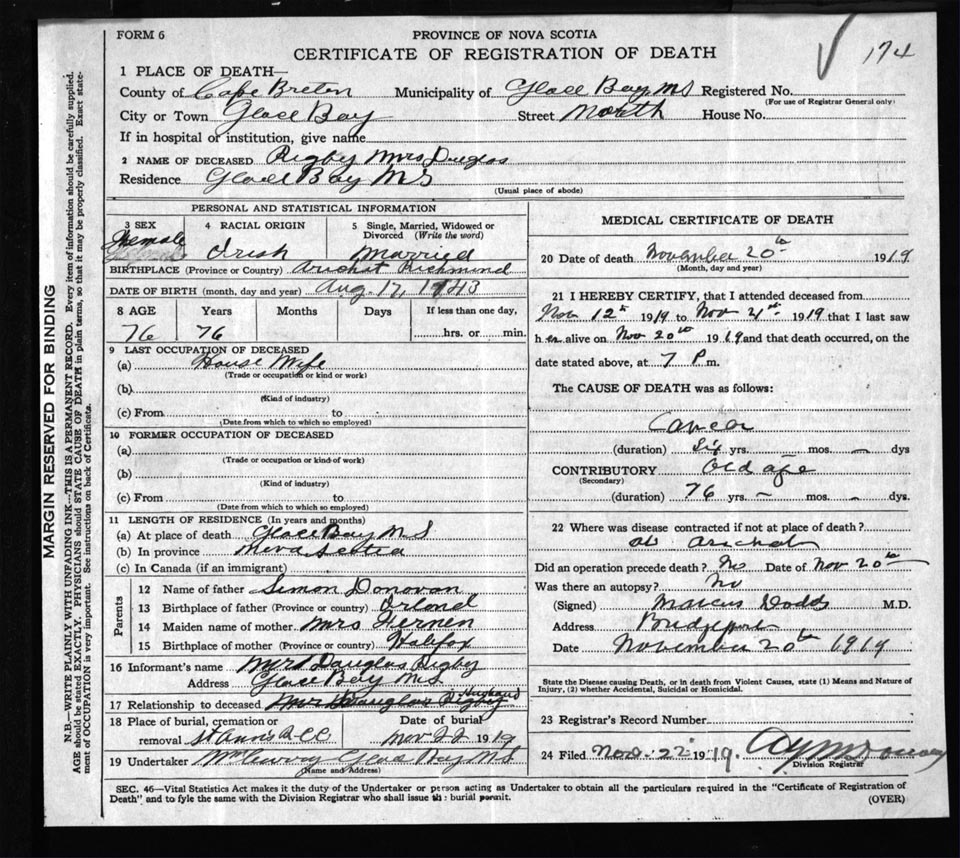 FORM 6
PROVINCE OF NOVA SCOTIA
CERTIFICATE OF REGISTRATION OF DEATH
174
1 PLACE OF DEATH—
County of Cape Breton Municipality of Glace Bay NS Registered No.
(For use of Registrar General only)
City or Town Glace Bay Street North House No.
If in hospital or institution, give name
2 NAME OF DECEASED Rigby Mrs Douglas
Residence Glace Bay NS
(Usual place of abode)
PERSONAL AND STATISTICAL INFORMATION
3 SEX 4 RACIAL ORIGIN 5 Single, Married, Widowed or Divorced (Write the word)
Female Irish Married
BIRTHPLACE (Province or Country) Arichat Richmond
DATE OF BIRTH (month, day and year) Aug. 17, 1843
8 AGE Years Months Days If less than one day,
76 76 hrs. or min.
9 LAST OCCUPATION OF DECEASED
(a) House Wife
(Trade or occupation or kind or work)
(b)
(Kind of industry)
(c) From to
(Date from which to which so employed)
10 FORMER OCCUPATION OF DECEASED
(a)
(Trade or occupation or kind of work)
(b)
(Kind of industry)
(c) From to
(Date from which to which so employed)
11 LENGTH OF RESIDENCE (In years and months)
(a) At place of death Glace Bay NS
(b) In province Nova Scotia
(c) In Canada (if an immigrant)
Parents
12 Name of father Simon Donovan
13 Birthplace of father (Province or country) Irland
14 Maiden name of mother Mrs
15 Birthplace of mother (Province or country) Halifax
16 Informant's name Mrs Douglas Rigby
Address Glace Bay NS
17 Relationship to deceased Mrs Douglas Rigby Husband
18 Place of burial, cremation or removal St Anns RCC Date of burial Nov 22 1919
19 Undertaker Glace Bay NS
(Name and Address)
MEDICAL CERTIFICATE OF DEATH
20 Date of death November 20th 1919
(Month, day and year)
21 I HEREBY CERTIFY, that I attended deceased from
Nov 12th 1919 to Nov 1919 that I last saw
her alive on Nov 20th 1919 and that death occurred, on the
date stated above, at 7 P.m.
The CAUSE OF DEATH was as follows:
Cancer
(duration) Six yrs. — mos. — dys
CONTRIBUTORY Old age
(Secondary)
(duration) 76 yrs. — mos. — dys.
22 Where was disease contracted if not at place of death?
at Arichat
Did an operation precede death? No Date of Nov 20th
Was there an autopsy? No
(Signed) Marcus Dodds M.D.
Address Bridgeport
Date November 20th 1919
State the Disease causing Death, or in death from Violent Causes, state (1) Means and Nature of
Injury, (2) whether Accidental, Suicidal or Homicidal.
23 Registrar's Record Number
24 Filed Nov. 22 1919.
Division Registrar
SEC. 46—Vital Statistics Act makes it the duty of the Undertaker or person acting as Undertaker to obtain all the particulars required in the "Certificate of Registration of
Death" and to fyle the same with the Division Registrar who shall issue the burial permit.
(OVER)
MARGIN RESERVED FOR BINDING
N.B.—WRITE PLAINLY WITH UNFADING INK—THIS IS A PERMANENT RECORD. Every item of information should be carefully supplied.
AGE should be stated EXACTLY. PHYSICIANS should STATE CAUSE OF DEATH in plain terms, so that it may be properly classified. Exact state-
ment of OCCUPATION is very important. See instructions on back of Certificate.